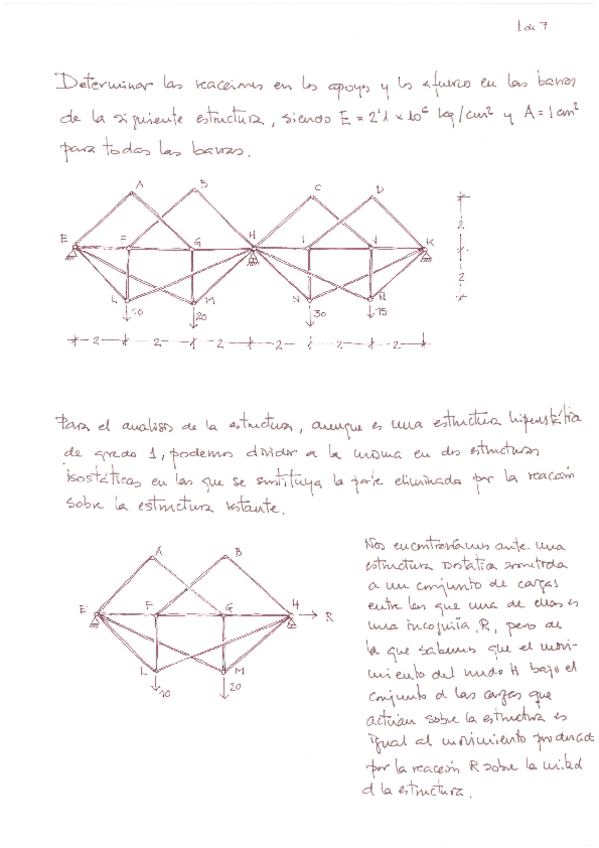 1 de 7
Determinar las reacciones en los apoyos y los esfuerzos en las barras
de la siguiente estructura, siendo E = 2'1 x 10⁶ kg/cm² y A = 1 cm²
para todas las barras.
A B C D
E F G H I J K 2
L M N Ñ 2
10 20 30 15
2 2 2 2 2 2
Para el análisis de la estructura, aunque es una estructura hiperestática
de grado 1, podemos dividir a la misma en dos estructuras
isostáticas en las que se sustituya la parte eliminada por la reacción
sobre la estructura restante.
A B
E F G H R
L M
10 20
Nos encontraríamos ante una
estructura isostática sometida
a un conjunto de cargas
entre las que una de ellas es
una incógnita, R, pero de
la que sabemos que el movi-
miento del nudo H bajo el
conjunto d las cargas que
actúan sobre la estructura es
igual al movimiento producido
por la reacción R sobre la mitad
d la estructura.